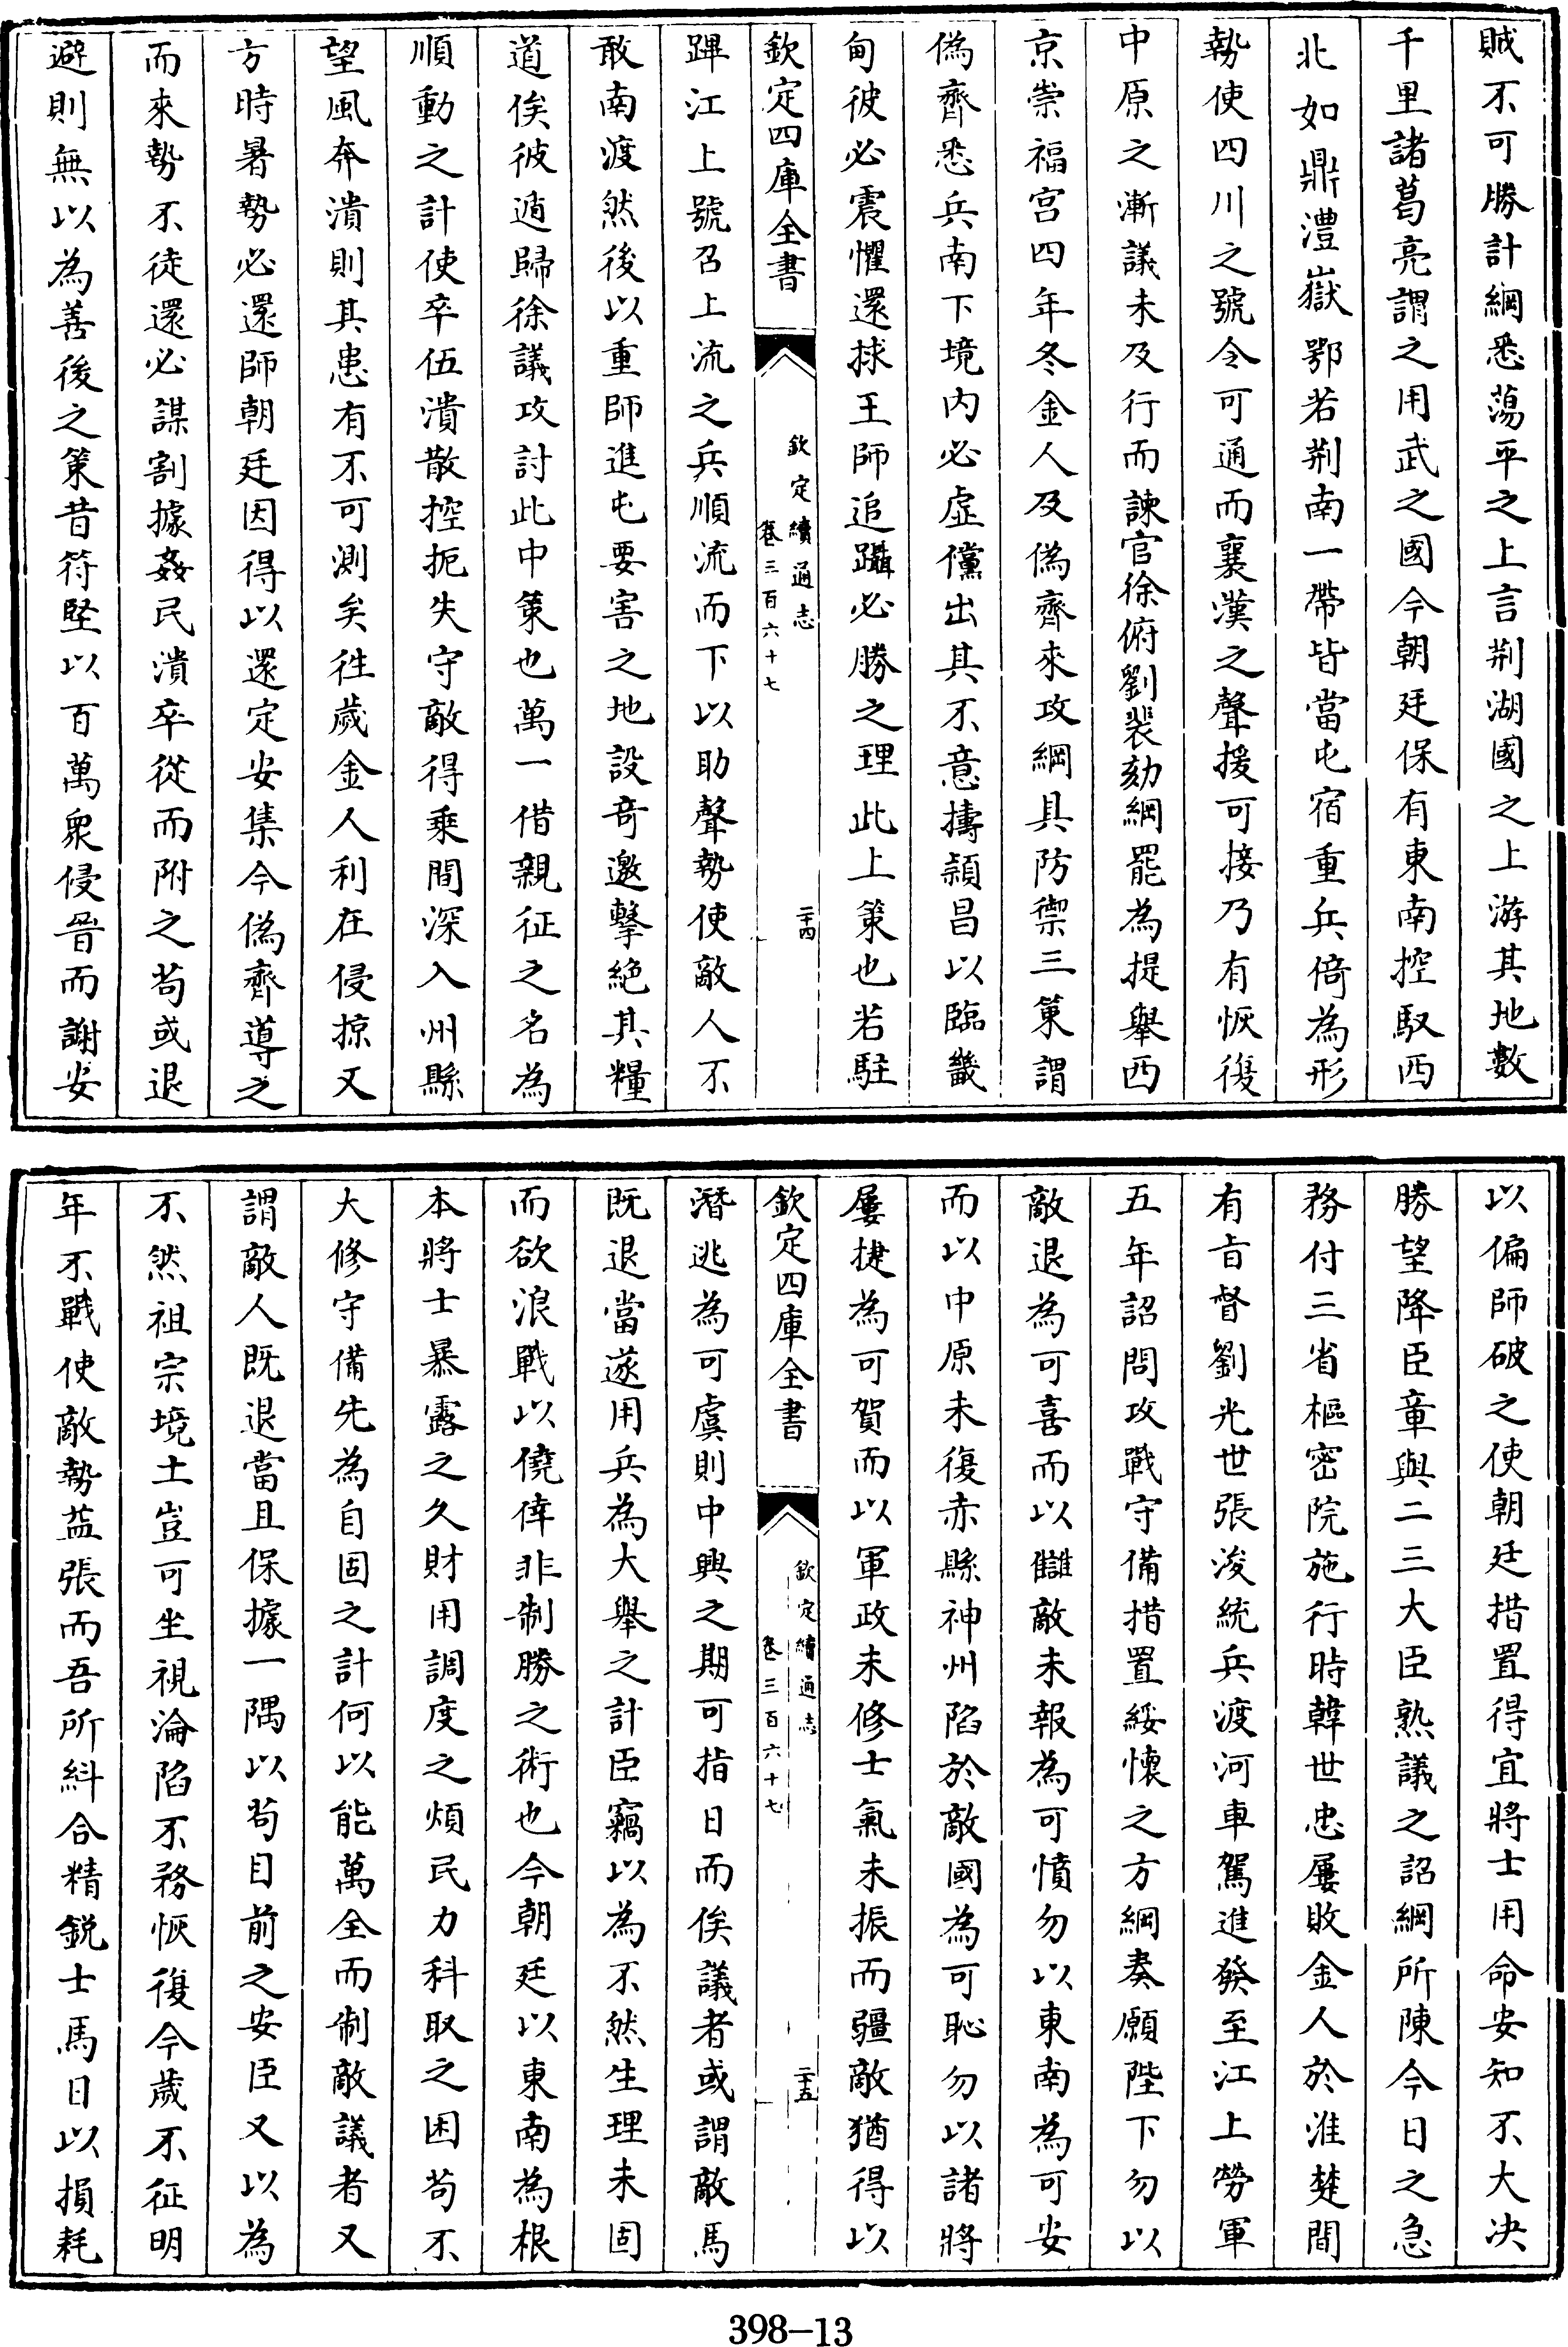 賊不可勝計綱悉蕩平之上言荆湖國之上游其地數
千里諸葛亮謂之用武之國今朝廷保有東南控馭西
北如鼎澧嶽鄂若荆南一帶皆當屯宿重兵倚為形
勢使四川之號令可通而襄漢之聲援可接乃有恢復
中原之漸議未及行而諫官徐俯劉裴劾綱罷為提舉西
京崇福宫四年冬金人及偽齊來攻綱具防禦三策謂
偽齊悉兵南下境内必虛儻出其不意擣潁昌以臨畿
甸彼必震懼還捄王師追躡必勝之理此上策也若駐
欽定四庫全書
欽定續通志
卷三百六十七
二十四
蹕江上號召上流之兵順流而下以助聲勢使敵人不
敢南渡然後以重師進屯要害之地設竒邀擊絶其糧
道俟彼遁歸徐議攻討此中策也萬一借親征之名為
順動之計使卒伍潰散控扼失守敵得乘間深入州縣
望風奔潰則其患有不可測矣徃歲金人利在侵掠又
方時暑勢必還師朝廷因得以還定安集今偽齊導之
而來勢不徒還必謀割據姦民潰卒從而附之苟或退
避則無以為善後之策昔符堅以百萬衆侵晉而謝安
以偏師破之使朝廷措置得宜將士用命安知不大决
勝望降臣章與二三大臣熟議之詔綱所陳今日之急
務付三省樞密院施行時韓世忠屢敗金人於淮楚間
有㫖督劉光世張浚統兵渡河車駕進發至江上勞軍
五年詔問攻戰守備措置綏懷之方綱奏願陛下勿以
敵退為可喜而以讎敵未報為可憤勿以東南為可安
而以中原未復赤縣神州陷於敵國為可恥勿以諸將
屢捷為可賀而以軍政未修士氣未振而疆敵猶得以
欽定四庫全書
欽定續通志
卷三百六十七
二十五
潛逃為可虞則中興之期可指日而俟議者或謂敵馬
既退當遂用兵為大舉之計臣竊以為不然生理未固
而欲浪戰以僥倖非制勝之術也今朝廷以東南為根
本將士暴露之久財用調度之煩民力科取之困苟不
大修守備先為自固之計何以能萬全而制敵議者又
謂敵人既退當且保據一隅以苟目前之安臣又以為
不然祖宗境土豈可坐視淪陷不務恢復今歲不征明
年不戰使敵勢益張而吾所糾合精鋭士馬日以損耗
398-13